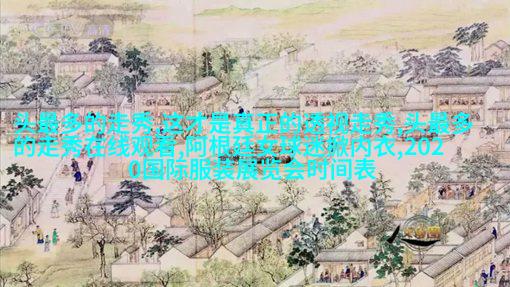 头最多的走秀,这才是真正的透视走秀,头最多
的走秀在线观看,阿根廷女球迷掀内衣,202
0国际服装展览会时间表